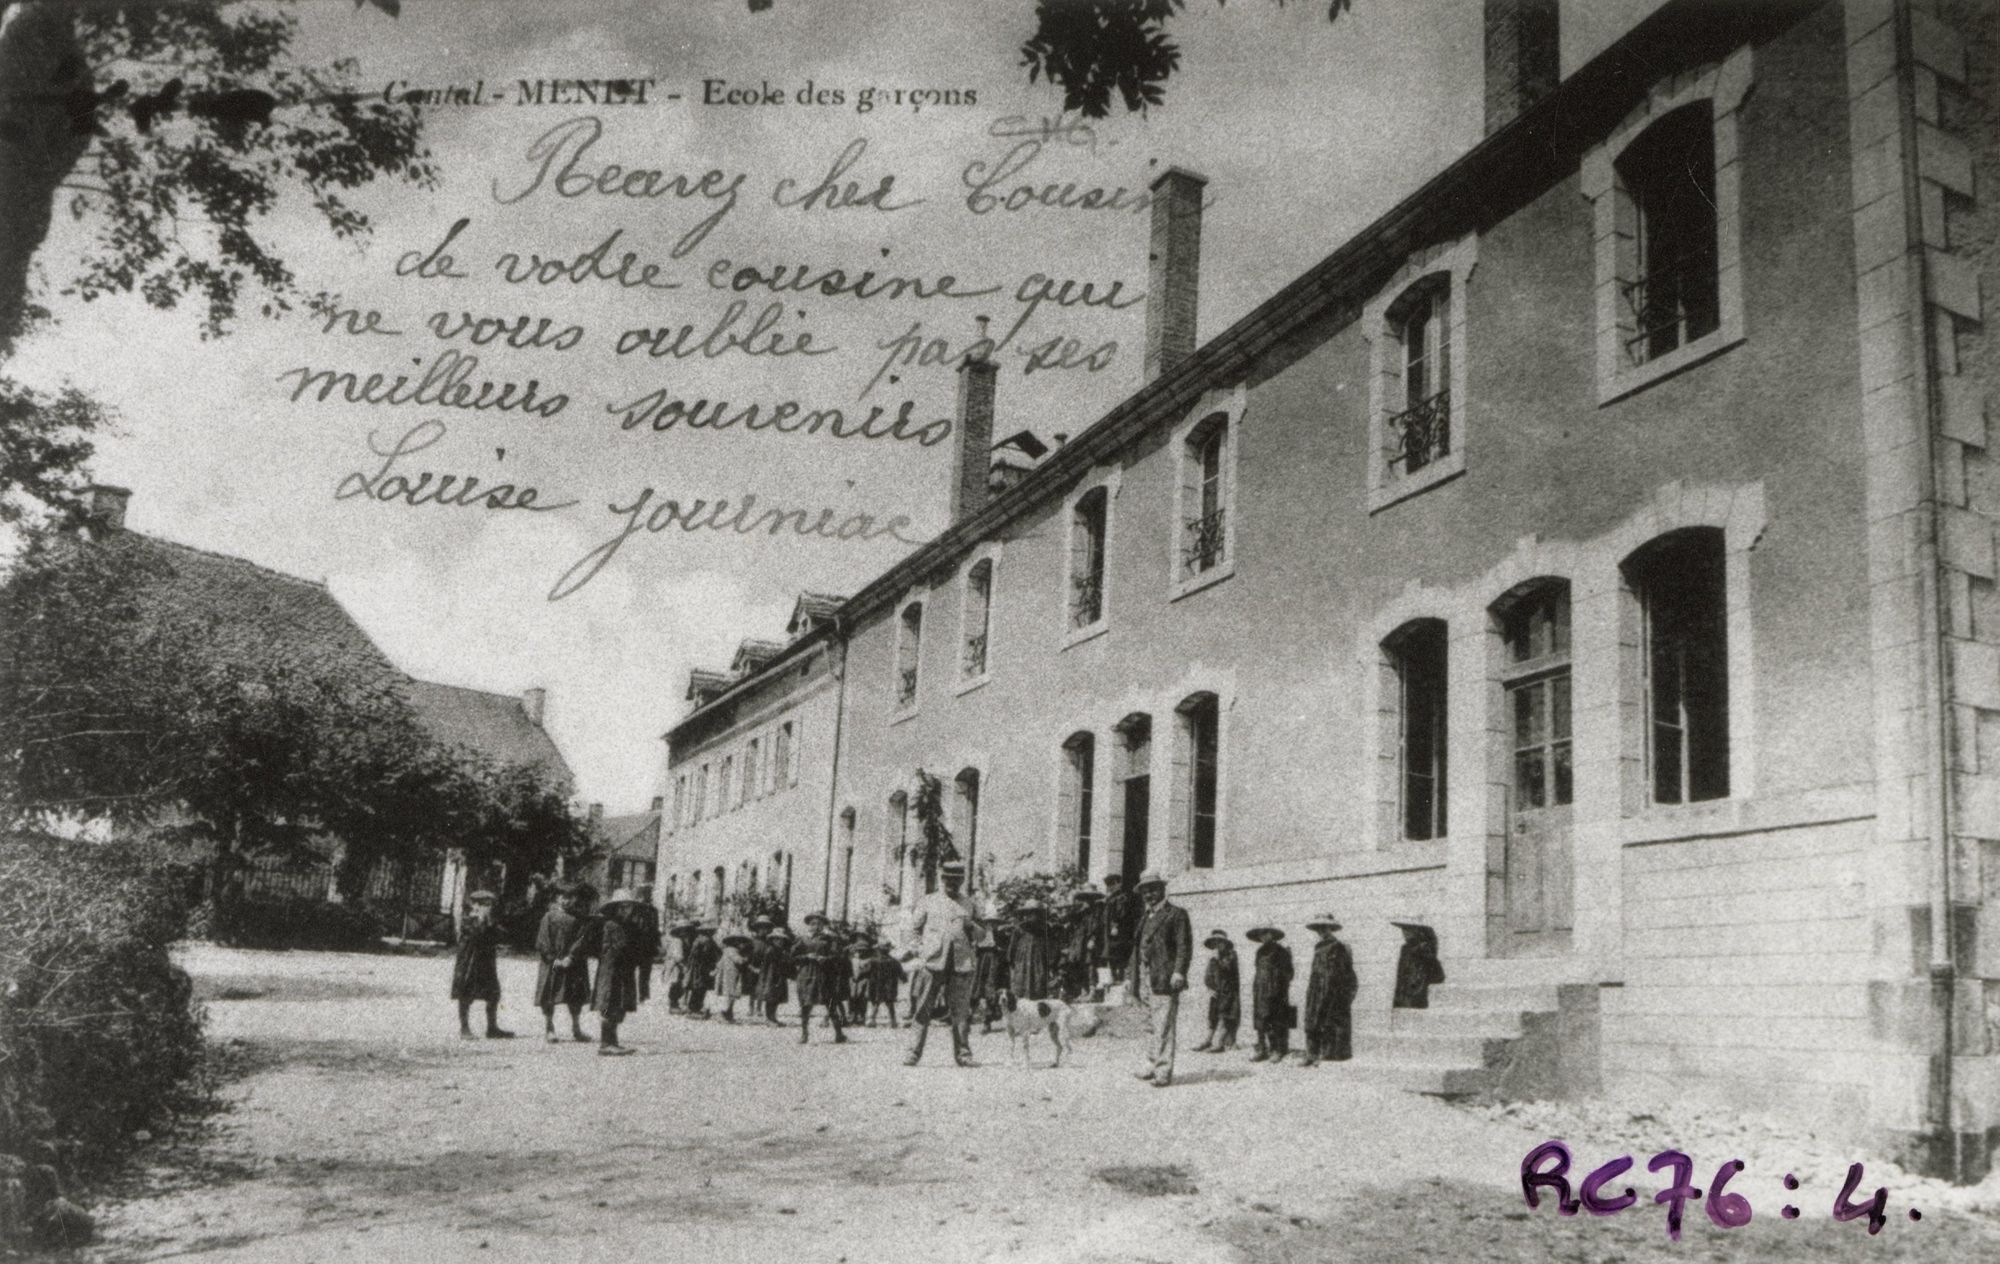 Cantal - MENET - Ecole des garçons
Recevez cher Cousin
de votre cousine qui
ne vous oublie pas ses
meilleurs souvenirs
Louise Journiac
RC76:4.